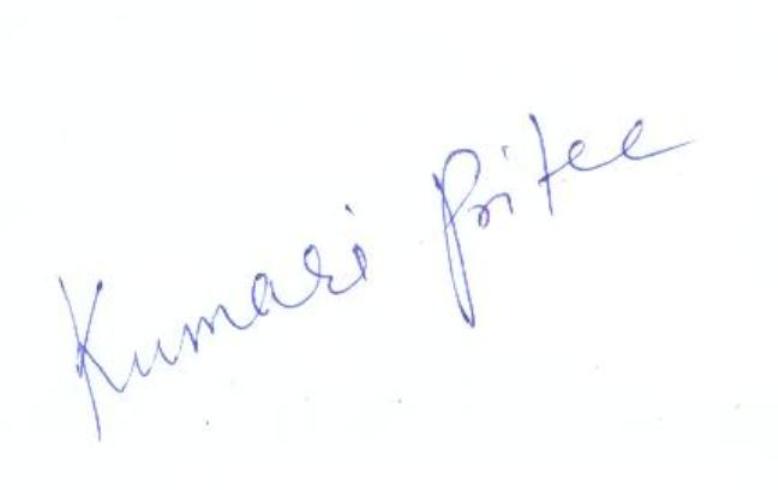 Kumari Pritee